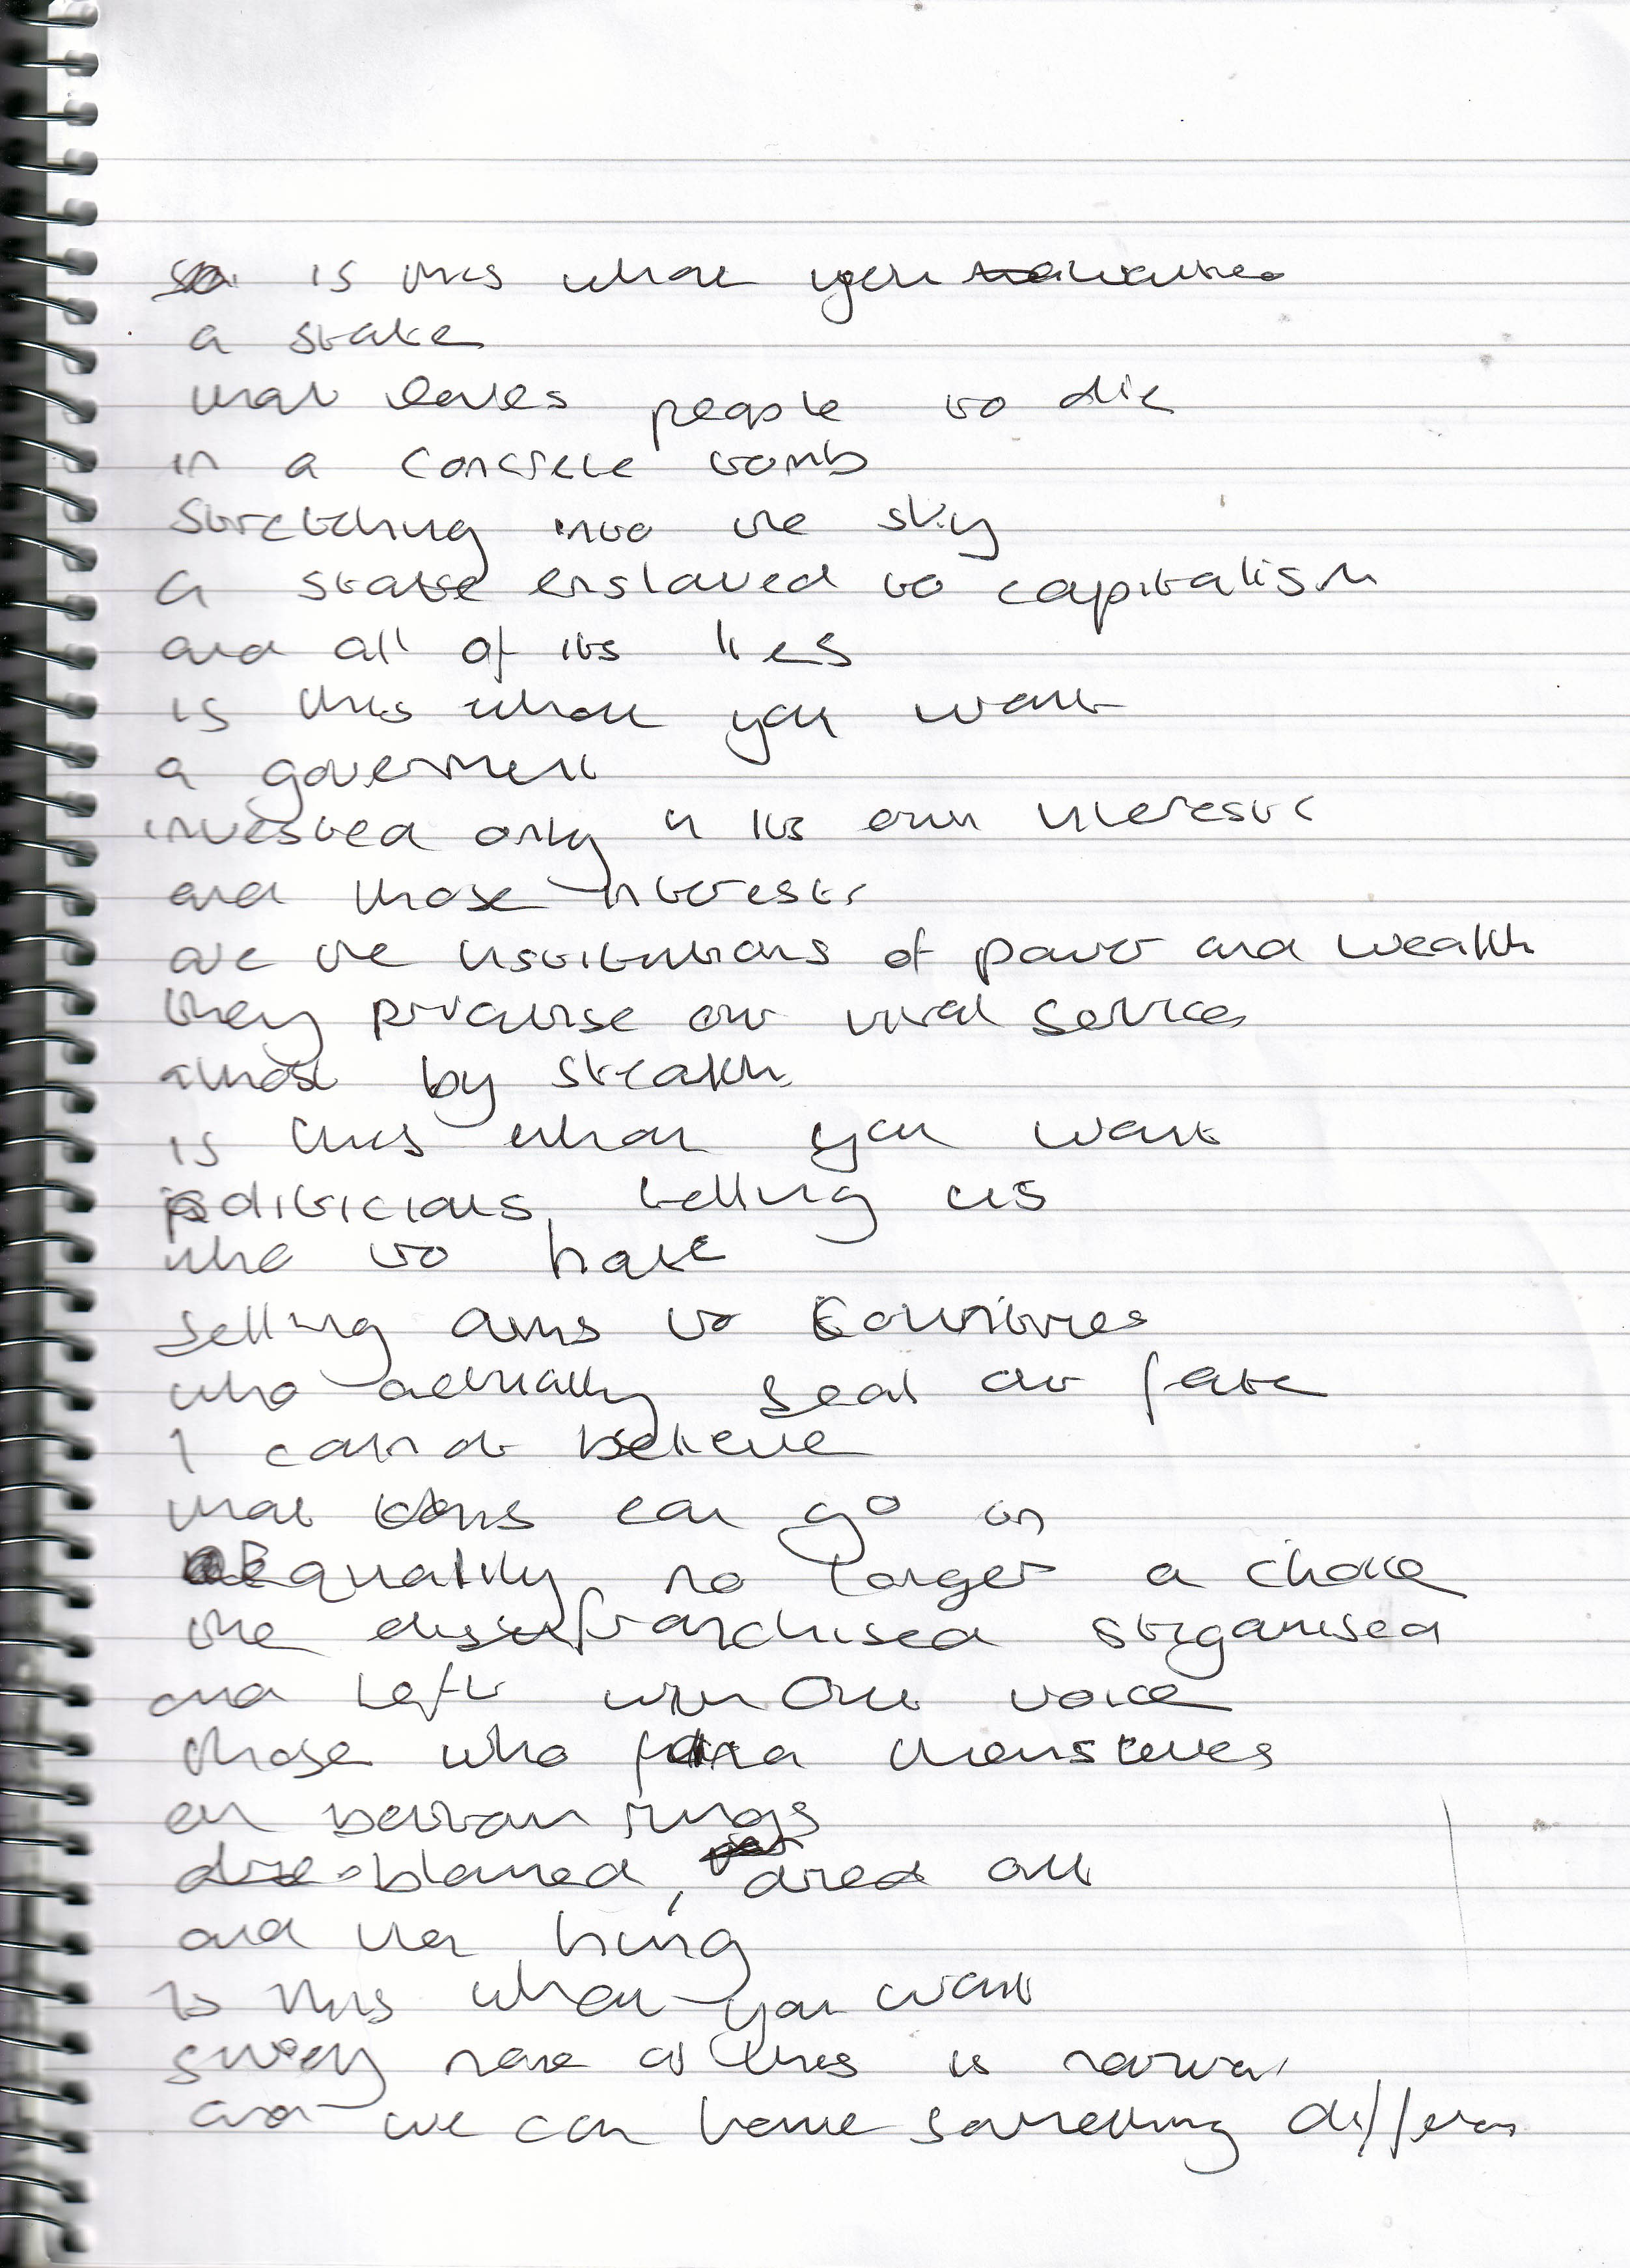 is this what you
a state
that leaves people to die
in a concrete tomb
stretching into the sky
a state enslaved to capitalism
and all of its lies
is this what you want
a goverment
invested only in its own interests
and those interests
are the institutions of power and wealth
they privatise our vital services
almost by stealth
is this what you want
politicians telling us
who to hate
selling arms to countries
who actually seal our fate
I cannot believe
that this can go on
equality no longer a choice
the disenfranchised stigamised
and left without voice
those who find themselves
on bottom rungs
blamed, out
and then hung
Is this what you want
surely none of this is
and we can something different